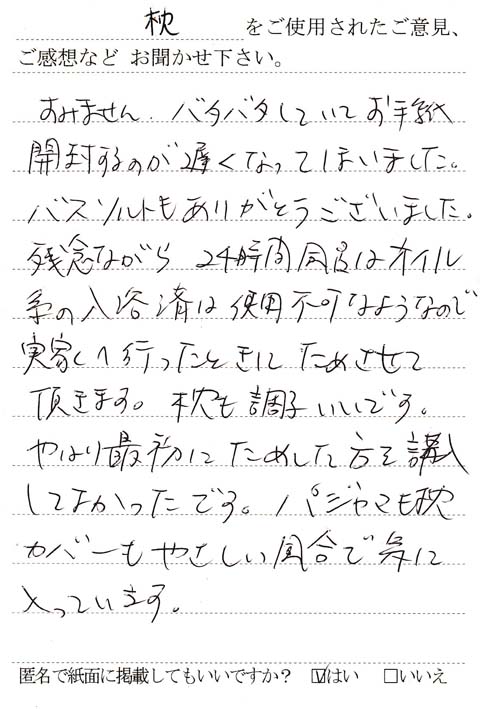 枕 をご使用されたご意見、
ご感想など お聞かせ下さい。
すみません. バタバタしていてお手紙
開封するのが遅くなってしまいました。
バスソルトもありがとうございました。
残念ながら 24時間風呂はオイル
系の入浴済は使用不可なようなので
実家へ行ったときに ためさせて
頂きます。 枕も調子いいです。
やはり最初に ためした方を購入
してよかったです。パジャマも枕
カバーもやさしい風合で気に
入っています。
匿名で紙面に掲載してもいいですか? ☑はい □いいえ